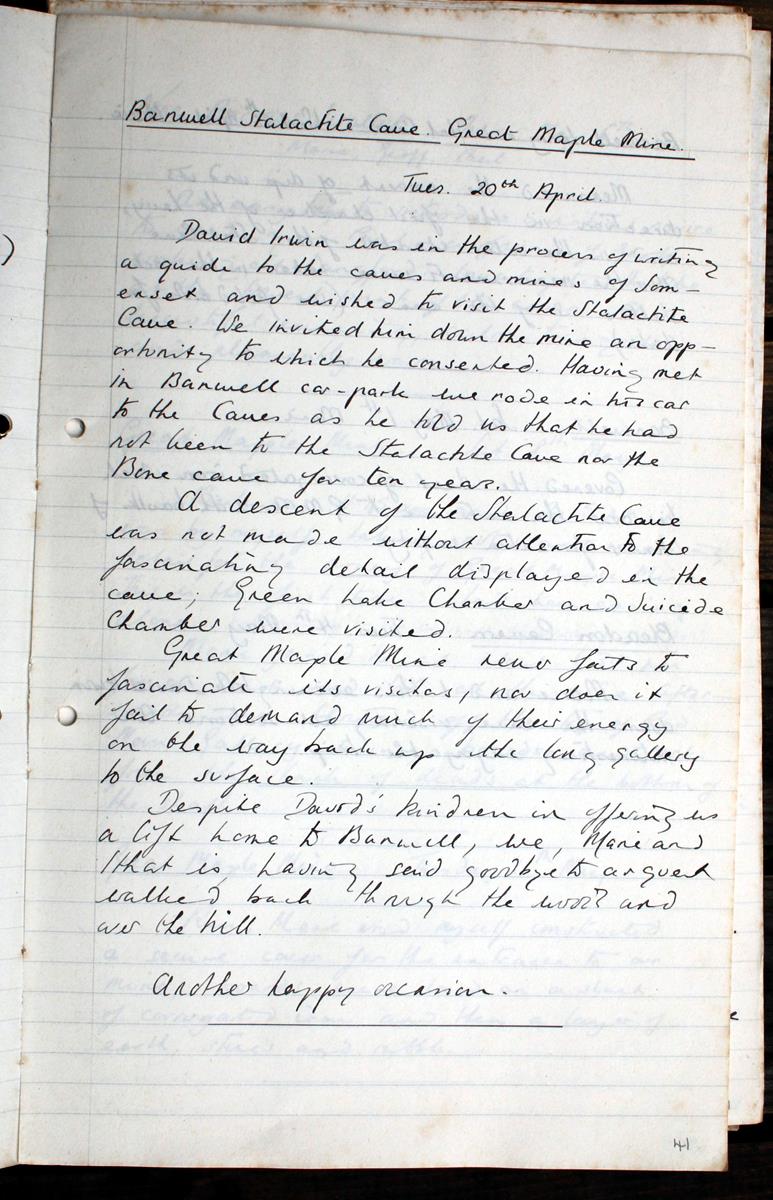 Banwell Stalactite Cave. Great Maple Mine.
Tues. 20th April.
David Irwin was in the process of writing
a guide to the caves and mines of Som-
erset and wished to visit the Stalactite
Cave. We invited him down the mine an opp-
ortunity to which he consented. Having met
in Banwell car-park we rode in his car
to the Caves as he told us that he had
not been to the Stalactite Cave nor the
Bone cave for ten years.
A descent of the Stalactite Cave
was not made without attention to the
fascinating detail displayed in the
cave; Green Lake Chamber and Suicide
Chamber were visited.
Great Maple Mine never fails to
fascinate its visitors, nor does it
fail to demand much of their energy
on the way back up the long gallery
to the surface.
Despite David's kindness in offering us
a lift home to Banwell, we, Marie and
I that is, having said goodbye to a guest
walked back through the wood and
over the hill.
Another happy occasion.
41